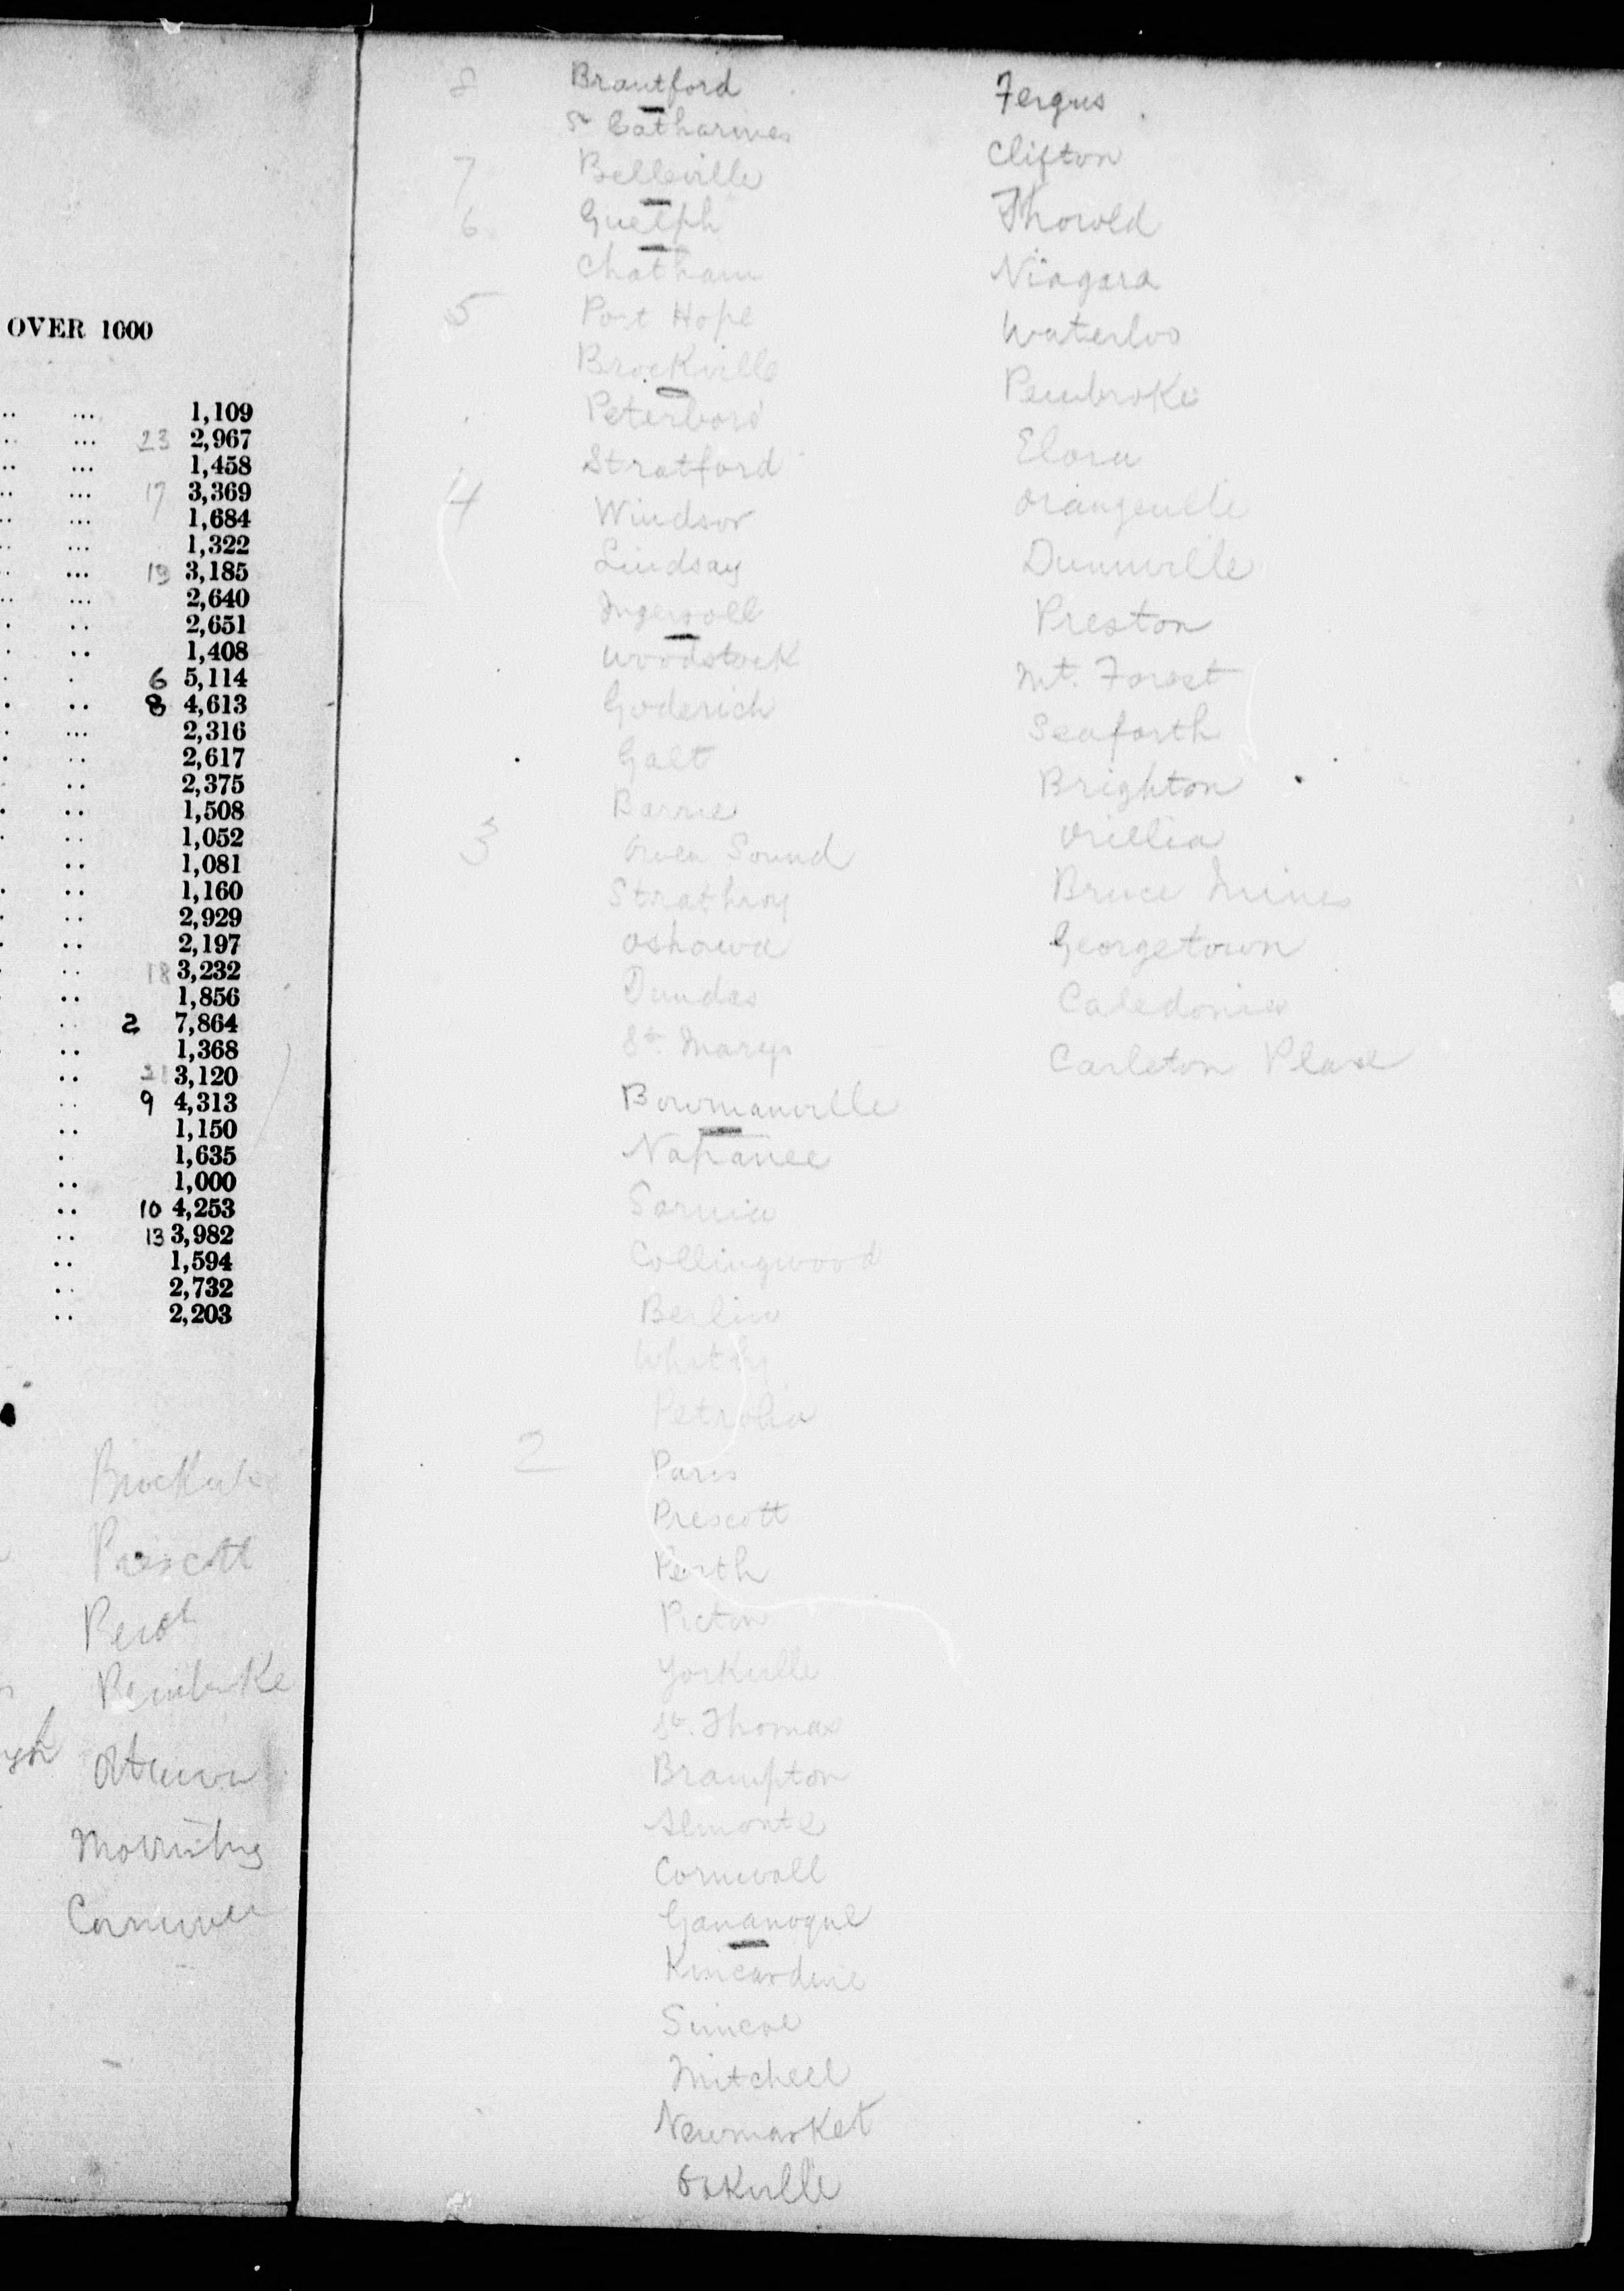 OVER 1000
.. ... 1,109
.. ... 23 2,967
.. ... 1,458
.. ... 17 3,369
.. ... 1,684
.. ... 1,322
. ... 19 3,185
.. ... 2,640
. .. 2,651
. .. 1,408
. . 6 5,114
. .. 8 4,613
... 2,316
. .. 2,617
.. 2,375
. .. 1,508
.. 1,052
.. 1,081
. .. 1,160
.. 2,929
. .. 2,197
.. 18 3,232
.. 1,856
.. 2 7,864
.. 1,368
.. 21 3,120
.. 9 4,313
.. 1,150
. 1,635
.. 1,000
.. 10 4,253
.. 13 3,982
.. 1,594
.. 2,732
.. 2,203
Brockville
Prescott
Perth
Pembroke
Ottawa
8 Brantford
St Catharines
7 Belleville
6 Guelph
Chatham
5 Port Hope
Brockville
Peterboro'
Stratford
4 Windsor
Lindsay
Ingersoll
Woodstock
Goderich
Galt
Barrie
3 Owen Sound
Strathroy
Oshawa
Dundas
St. Marys
Bowmanville
Napanee
Sarnia
Collingwood
Berlin
Whitby
Petrolia
2 Paris
Prescott
Perth
Picton
Yorkville
St. Thomas
Brampton
Almonte
Cornwall
Gananoque
Kincardine
Simcoe
Mitchell
Newmarket
Oakville
Fergus
Clifton
Thorold
Niagara
Waterloo
Pembroke
Elora
Orangeville
Dunnville
Preston
Mt. Forest
Seaforth
Brighton
Orillia
Bruce Mines
Georgetown
Caledonia
Carleton Place